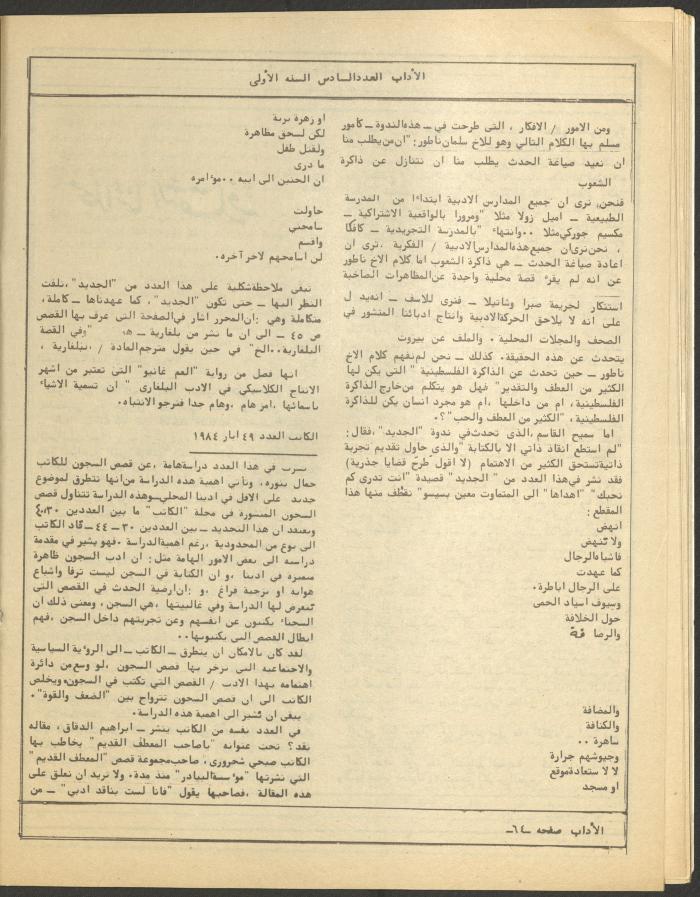 الآداب العدد السادس السنه الأولى
ومن الامور / الافكار ، التى طرحت في ــ هذه الندوة ــ كأمور
مسلم بها الكلام التالي وهو للاخ سلمان ناطور: "ان من يطلب منا
ان نعيد صياغة الحدث يطلب منا ان نتنازل عن ذاكرة
الشعوب
فنحن نرى ان جميع المدارس الادبية ابتداءا من المدرسة
الطبيعية ــ اميل زولا مثلا "ومرورا بالواقعية الاشتراكية ــ
مكسيم جوركي مثلا ٠٠ وانتهاء "بالمدرسة التجريدية ــ كافكا
، نحن نرى ان جميع هذه المدارس الادبية / الفكرية ،ترى ان
اعادة صياغة الحدث ــ هي ذاكرة الشعوب اما كلام الاخ ناطور
عن انه لم يقرء قصة محلية واحدة عن المظاهرات الصاخبة
استنكار لجريمة صبرا وشاتيلا ــ فنرى للاسف ــ انه يدل
على انه لا يلاحق الحركة الادبية وانتاج ادبائنا المنشور في
الصحف والمجلات المحلية ٠ والملف عن بيروت
يتحدث عن هذه الحقيقة٠ كذلك ــ نحن لم نفهم كلام الاخ
ناطور ــ حين تحدث عن الذاكرة الفلسطينية " التي يكن لها
الكثير من العطف والتقدير" فهل هو يتكلم من خارج الذاكرة
الفلسطينية، ام من داخلها ،ام هو مجرد انسان يكن للذاكرة
الفلسطينية، "الكثير من العطف والحب"؟٠
اما سميح القاسم ،الذى تحدث في ندوة "الجديد" ،فقال:
"لم استطع انقاذ ذاتي الا بالكتابة "والذى حاول تقديم تجربة
ذاتية تستحق الكثير من الاهتمام (لا اقول طرح قضايا جذرية)
فقد نشر في هذا العدد من "الجديد" قصيدة "انت تدرى كم
نحبك" "اهداها" الى المتماوت معين بسيسو" نقطف منها هذا
المقطع:
انهض
ولا تنهض
فاشباه الرجال
كما عهدت
على الرجال اباطرة٠
وسيوف اسياد الحمى
حول الخلافة
والرصافة
والمضافة
والكنافة
ساهرة ٠٠
وجيوشهم جرارة
لا لاستعادة موقع
او مسجد
او زهرة برية
لكن لسحق مظاهرة
ولقتل طفل
ما درى
ان الحنين الى ابيه ٠٠مؤامره
حاولت
سامحني
واقسم
لن اسامحهم لآخر آخره٠
تبقى ملاحظة شكلية على هذا العدد من "الجديد"، نلفت
النظر اليها ــ حتى تكون "الجديد" ، كما عهدناها ــ كاملة،
متكاملة وهي :ان المحرر اشار في الصفحة التى عرف بها القصص
ص ٤٥ ــ الى ان ما نشر من بلغارية ــ هـ "وفي القصة
البلغارية ٠٠الخ" في حين يقول مترجم المادة / ،بلغارية ،
انها فصل من رواية "العم غانيو" التى تعتبر من اشهر
الانتاج الكلاسيكي في الادب البلغارى " ان تسمية الاشياء
باسمائها ،امر هام ،وهام جدا فنرجو الانتباه٠
الكاتب العدد ٤٩ ايار ١٩٨٤
نشرت في هذا العدد دراسة هامة ،عن قصص السجون للكاتب
جمال بنوره، وتأتي اهمية هذه الدراسة من انها تتطرق لموضوع
جديد على الاقل في ادبنا المحلي وهذه الدراسة تتناول قصص
السجون المنشورة فى مجلة "الكاتب" ما بين العددين ٣٠ـ٤٤
ونعتقد ان هذا التحديد ــ بين العددين ٣٠ ــ ٤٤ ــ قاد الكاتب
الى نوع من المحدودية ،رغم اهمية الدراسة ٠فهو يشير في مقدمة
دراسته الى بعض الامور الهامة مثل: ان ادب السجون ظاهرة
متميزة في ادبنا ،و ان الكتابة في السجن ليست ترفا واشباع
هواية او تزجية فراغ ،و :ان ارضية الحدث في القصص التى
تتعرض لها الدراسة وفي غالبيتها ،هي السجن، ومعنى ذلك ان
السجناء يكتبون عن انفسهم وعن تجربتهم داخل السجن ،فهم
ابطال القصص التي يكتبونها٠٠
لقد كان بالامكان ان يتطرق ــ الكاتب ــ الى الرؤية السياسية
والاجتماعيه التى تزخر بها قصص السجون ،لو وسع من دائرة
اهتمامه بهذا الادب / القصص التى تكتب في السجون٠ويخلص
الكاتب الى ان قصص السجون تتراوح بين "الضعف والقوة"٠
يبقى ان نشير الى اهمية هذه الدراسة٠
في العدد نفسه من الكاتب ينشر ــ ابراهيم الدقاق ، مقاله
نقد؟ تحت عنوانه "يا صاحب المعطف القديم" يخاطب بها
الكاتب صبحي شحرورى ،صاحب مجموعة قصص "المعطف القديم"
التي نشرتها "مؤسسة البيادر" منذ مدة٠ ولا نريد ان نعلق على
هذه المقالة ،فصاحبها يقول "فانا لست بناقد ادبي" ــ من
الآداب صفحه ــ٦٤ــ